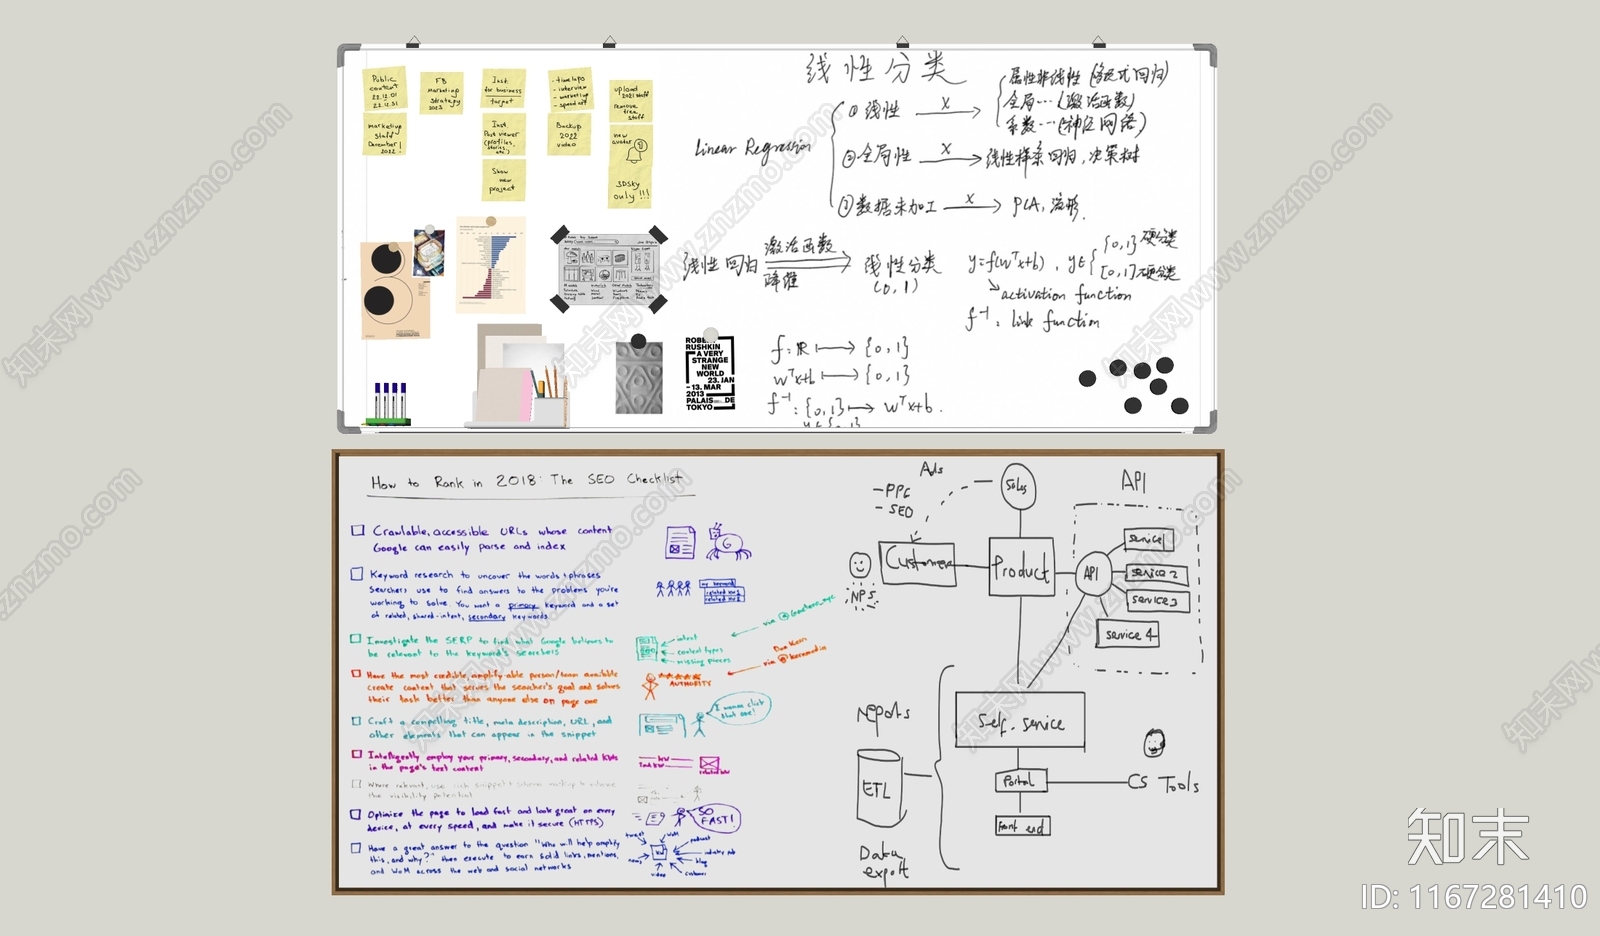 Public
content
22.12.01
22.12.31
FB
Marketing
Strategy
2023
Inst.
for business
target
- timelaps
- interview
- marketing
- speed off
upload
2021 staff
remove
free
staff
marketing
staff
December!
2022
Inst.
Post viewer
(profiles,
stories,
etc.)
Backup
2022
video
new
avatar
3DSky
only!!!
Show
new
project
ROBE
RUSHKIN
A VERY
STRANGE
NEW
WORLD
23. JAN
- 13. MAR
2013
PALAIS DE
TOKYO
线性分类
Linear Regression
① 线性 x
属性非线性
全局…(激活函数)
系数…(神经网络)
②全局性 x 线性样条回归,决策树
③数据未加工 x PCA,流形.
线性回归 激活函数 线性分类
降维 (0,1)
y=f(wᵀx+b), y∈
{0,1} 硬分类
[0,1] 软分类
activation function
f⁻¹: link function
f: ℝ ⟼ {0,1}
wᵀx+b ⟼ {0,1}
f⁻¹: {0,1} ⟼ wᵀx+b.
y∈{0,1}
How to Rank in 2018: The SEO Checklist
Crawlable, accessible URLs whose content
Google can easily parse and index
Keyword research to uncover the words + phrases
Searchers use to find answers to the problems you're
working to solve. You want a primary keyword and a set
of related, shared-intent, secondary keywords.
my keyword
related kw1
related kw2
Investigate the SERP to find what Google believes to
be relevant to the keyword's searchers
intent
content types
missing pieces
Have the most credible, amplify-able person/team available
create content that serves the searcher's goal and solves
their task better than anyone else on page one
AUTHORITY
via
via @kernmedia
Craft a compelling title, meta description, URL, and
other elements that can appear in the snippet
I wanna click
that one!
Intelligently employ your primary, secondary, and related KWs
in the page's text content
KW
2nd KW
related kw
Where relevant, use rich snippet + schema markup to enhance
the visibility potential
Optimize the page to load fast and look great on every
device, at every speed, and make it secure (HTTPS)
SO
FAST!
Have a great answer to the question "Who will help amplify
this, and why?" then execute to earn solid links, mentions,
and WoM across the web and social networks
tweet
WoM
podcast
industry pub
blog
customer
video
news
Ads
- PPC
- SEO
Sales
API
Customer
Product
API
service 1
service 2
service 3
service 4
NPS
Reports
ETL
Data
export
Self-service
Portal
Front end
CS Tools
知末
ID: 1167281410
知末网www.znzmo.com